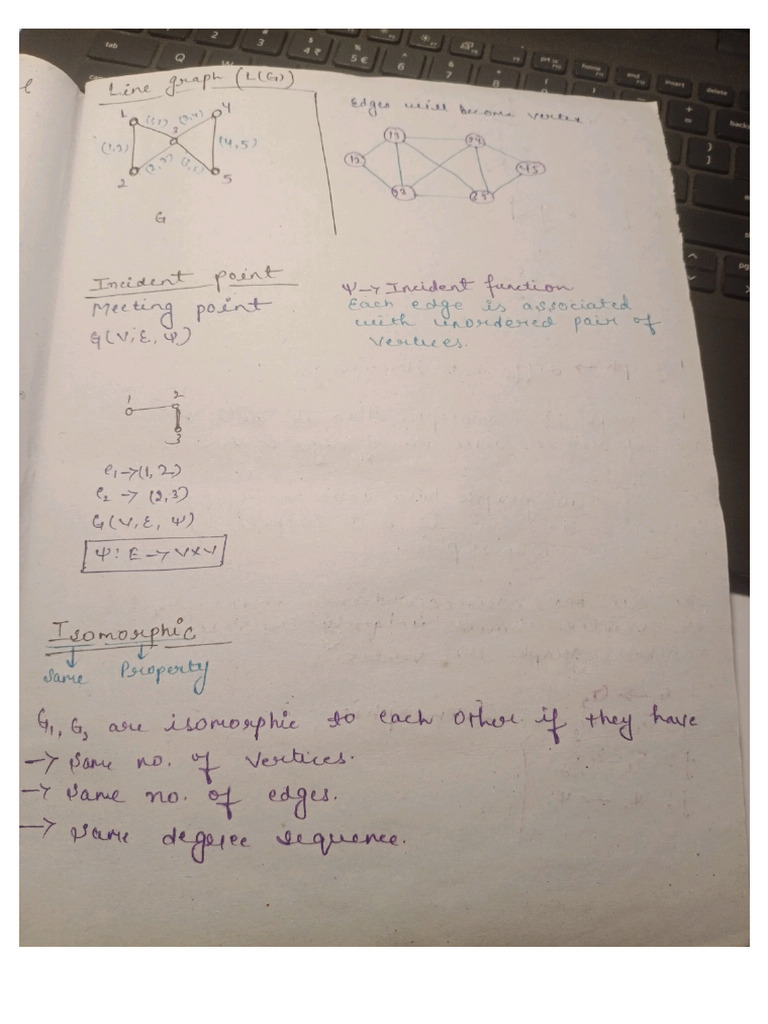 Line graph (L(G))
1
4
(1,3)
(3,4)
3
(1,2)
(4,5)
2
(2,3)
5
G
Edges will become vertex
13
34
12
45
23
35
Incident point
Meeting point
G(V, E, Ψ)
Ψ → Incident function
Each edge is associated
with unordered pair of
vertices.
1
2
3
e1 → (1, 2)
e2 → (2, 3)
G(V, E, Ψ)
Ψ: E → V×V
Isomorphic
same
Property
G1, G2 are isomorphic to each other if they have
→ same no. of vertices.
→ same no. of edges.
→ same degree sequence.